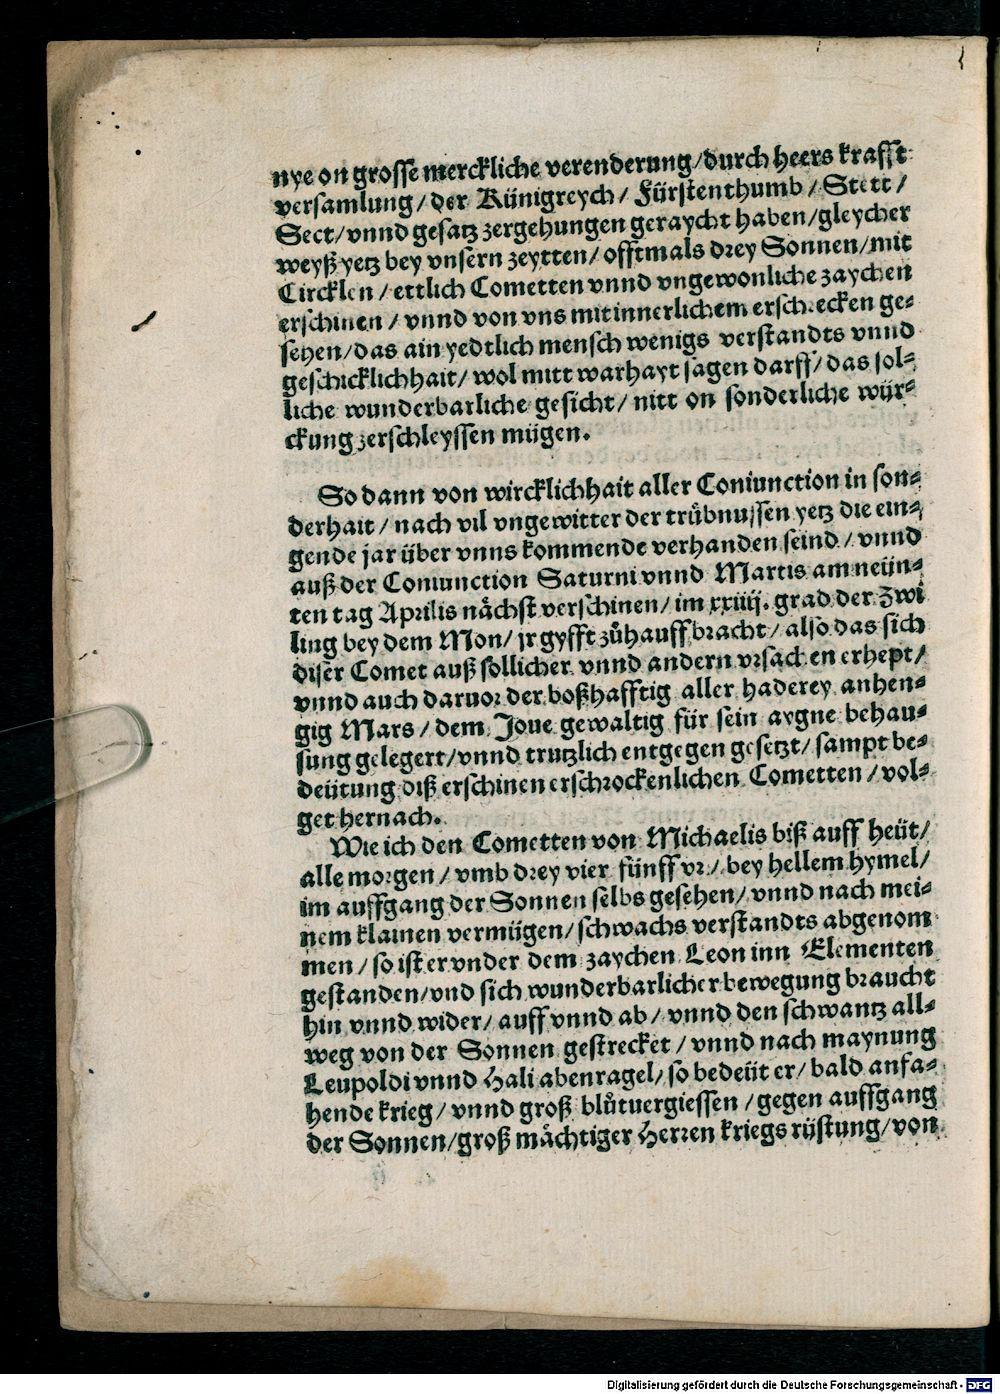 nye on grosse merckliche verenderung/durch heers krafft
versamlung/der Künigreych/Fürstenthumb/Stett/
Sect/vnnd gesatz zergehungen geraycht haben/gleycher
weyß yetz bey vnsern zeytten/offtmals drey Sonnen/mit
Circklen/ettlich Cometten vnnd vngewonliche zaychen
erschinen/vnnd von vns mit innerlichem erschrecken ge-
sehen/das ain yedtlich mensch wenigs verstandts vnnd
geschicklichhait/wol mitt warhayt sagen darff/das sol-
liche wunderbarliche gesicht/nitt on sonderliche wür-
ckung zerschleyssen mügen.
So dann von wircklichhait aller Coniunction in son-
derhait/nach vil vngewitter der trübnussen yetz die ein-
gende jar über vnns kommende verhanden seind/vnnd
auß der Coniunction Saturni vnnd Martis am neün-
ten tag Aprilis nächst verschinen/im xxiiij. grad der Zwi
ling bey dem Mon/jr gyfft zůhauff bracht/also das sich
diser Comet auß sollicher vnnd andern vrsachen erhept/
vnnd auch daruor der boßhafftig aller haderey anhen-
gig Mars/dem Joue gewaltig für sein aygne behau-
sung gelegert/vnnd trutzlich entgegen gesetzt/sampt be-
deütung diß erschinen erschrockenlichen Cometten/vol-
get hernach.
Wie ich den Cometten von Michaelis biß auff heüt/
alle morgen/vmb drey vier fünff vr/bey hellem hymel/
im auffgang der Sonnen selbs gesehen/vnnd nach mei-
nem klainen vermügen/schwachs verstandts abgenom
men/so ist er vnder dem zaychen Leon inn Elementen
gestanden/vnd sich wunderbarlicher bewegung braucht
hin vnnd wider/auff vnnd ab/vnnd den schwantz all-
weg von der Sonnen gestrecket/vnnd nach maynung
Leupoldi vnnd Hali abenragel/so bedeüt er/bald anfa-
hende krieg/vnnd groß blůtuergiessen/gegen auffgang
der Sonnen/groß mächtiger Herren kriegs rüstung/von
Digitalisierung gefördert durch die Deutsche Forschungsgemeinschaft - DFG